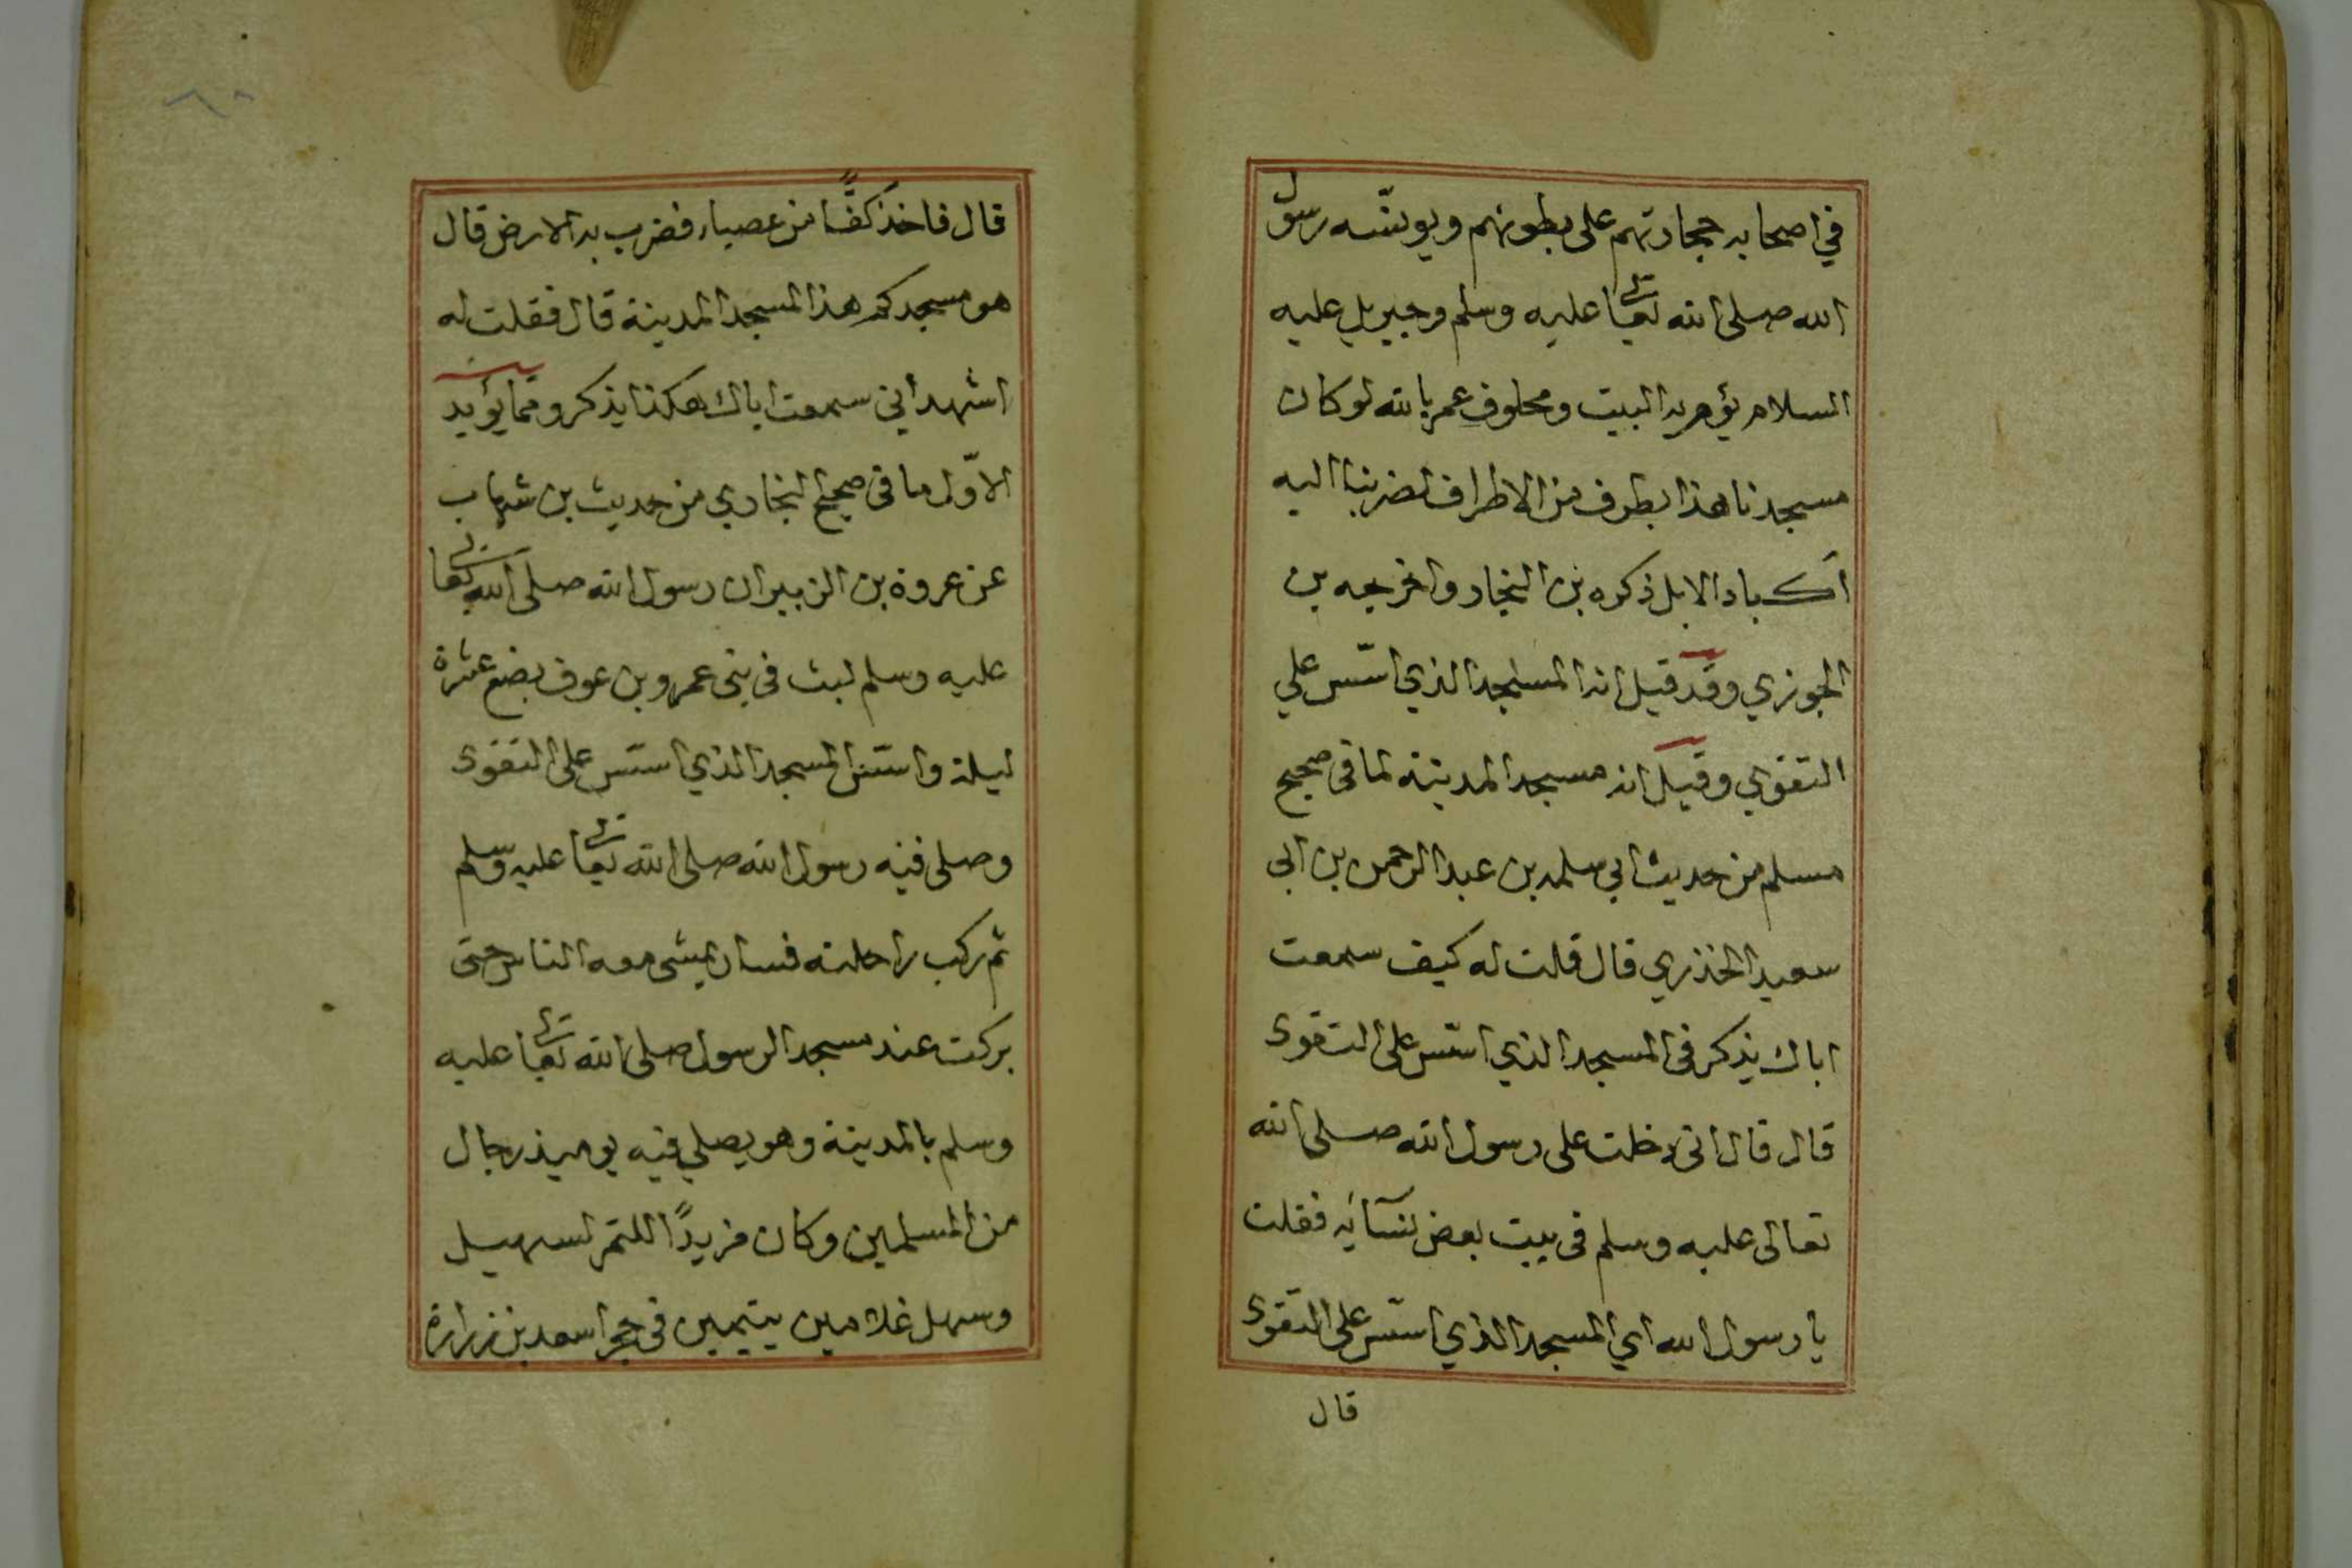 في اصحابه حجارتهم على بطونهم ويوسّسه رسول
الله صلى الله تعالى عليه وسلم وجبريل عليه
السلام يؤم به البيت ومحلوف عمر بالله لو كان
مسجدنا هذا بطرف من الاطراف لضربنا اليه
اكباد الابل ذكره بن النجار واخرجه بن
الجوزي وقد قيل انه المسجد الذي اسّس علي
التقوي وقيل انه مسجد المدينة لما في صحيح
مسلم من حديث ابي سلمه بن عبد الرحمن بن ابي
سعيد الخذري قال قلت له كيف سمعت
اباك يذكر في المسجد الذي اسّس على التقوى
قال قال اني دخلت على رسول الله صلى الله
تعالى عليه وسلم في بيت بعض نسآئه فقلت
يا رسول الله اي المسجد الذي اسّس على التقوى
قال
قال فاخذ كفًّا من عصباء فضرب به الارض قال
هو مسجدكم هذا المسجد المدينة قال فقلت له
اشهد أني سمعت اباك هكذا يذكر ومما يؤيد
الاوّل ما في صحيح البخاري من حديث بن شهاب
عن عروة بن الزبير ان رسول الله صلى الله تعالى
عليه وسلم لبث في بني عمرو بن عوف بضع عشرة
ليلة واسّس المسجد الذي اسّس على التقوى
وصلى فيه رسول الله صلى الله تعالى عليه وسلم
ثم ركب راحلته فسار يمشى معه الناس حتى
بركت عند مسجد الرسول صلى الله تعالى عليه
وسلم بالمدينة وهو يصلي فيه يوميذ رجال
من المسلمين وكان مربدًا للتمر لسهيل
وسهل غلامين يتيمين في حجر اسعد بن زرارة